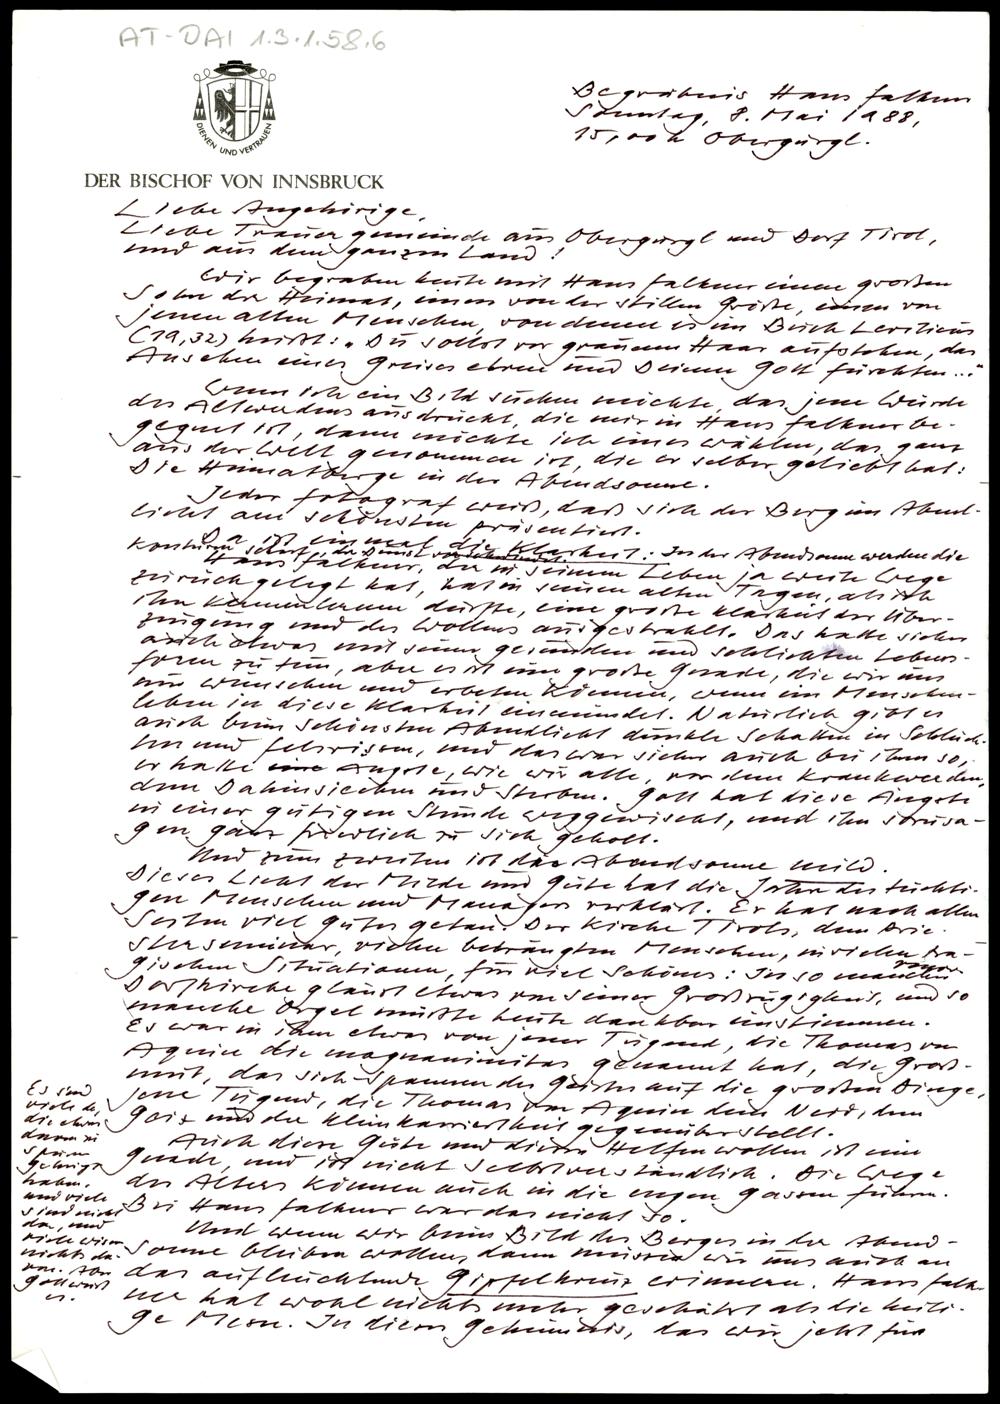 AT-DAI 1.3.1.58.6
DIENEN UND VERTRAUEN
DER BISCHOF VON INNSBRUCK
Begräbnis Hans Falkner
Sonntag, 8. Mai 1988,
15,00 h Obergurgl.
Liebe Angehörige,
Liebe Trauergemeinde aus Obergurgl und Dorf Tirol,
und aus dem ganzen Land!
Wir begraben heute mit Hans Falkner einen großen
Sohn der Heimat, einen von der stillen Größe, einen von
jenen alten Menschen, von denen es im Buch Leviticus
(19,32) heißt: "Du sollst vor grauem Haar aufstehen, das
Ansehen eines Greises ehren und Deinen Gott fürchten..."
Wenn ich ein Bild suchen möchte, das jene Würde
des Altwerdens ausdrückt, die mir in Hans Falkner be-
gegnet ist, dann möchte ich eines wählen, das ganz
aus der Welt genommen ist, die er selber geliebt hat:
Die Heimatberge in der Abendsonne.
Jeder Fotograf weiß, daß sich der Berg im Abend-
licht am schönsten präsentiert.
Da ist einmal die Klarheit: In der Abendsonne werden die
Konturen scharf, der Dunst verschwindet.
Hans Falkner, der in seinem Leben ja weite Wege
zurückgelegt hat, hat in seinen alten Tagen, als ich
ihn kennenlernen durfte, eine große Klarheit der Über-
zeugung und des Wollens ausgestrahlt. Das hatte sicher
auch etwas mit seiner gesunden und schlichten Lebens-
form zu tun, aber es ist eine große Gnade, die wir uns
nur wünschen und erbeten können, wenn ein Menschen-
leben in diese Klarheit einmündet. Natürlich gibt es
auch beim schönsten Abendlicht dunkle Schatten in Schluch-
ten und Felsrissen, und das war sicher auch bei ihm so,
er hatte eine Ängste, wie wir alle, vor dem Krankwerden,
dem Dahinsiechen und Sterben. Gott hat diese Ängste
in einer gütigen Stunde weggewischt, und ihn sozusa-
gen ganz friedlich zu sich geholt.
Und zum zweiten ist die Abendsonne mild.
Dieses Licht der Milde und Güte hat die Jahre des tüchti-
gen Menschen und Managers verklärt. Er hat nach allen
Seiten viel Gutes getan. Der Kirche Tirols, dem Prie-
sterseminar, vielen bedrängten Menschen, in vielen tra-
gischen Situationen, für viel Schönes: In so mancher
Dorfkirche glänzt etwas von seiner Großzügigkeit, und so
manche Orgel müßte heute dankbar einstimmen.
Es war in ihm etwas von jener Tugend, die Thomas von
Aquin die magnanimitas genannt hat, die Groß-
mut, das sich-Spannen des Geistes auf die großen Dinge,
jene Tugend, die Thomas von Aquin dem Neid, dem
Geiz und der Kleinkariertheit gegenüberstellt.
Auch diese Güte und dieses Helfenwollen ist eine
Gnade, und ist nicht selbstverständlich. Die Wege
des Alters können auch in die engen Gassen führen.
Bei Hans Falkner war das nicht so.
Es sind
viele da,
die etwas
davon zu
spüren
gekriegt
haben.
und viele
sind nicht
da, und
viele wissen
nichts da-
von. Aber
Gott weiß
es.
Und wenn wir beim Bild des Berges in der Abend-
sonne bleiben wollen, dann müssen wir uns auch an
das aufleuchtende Gipfelkreuz erinnern. Hans Falk-
ner hat wohl nichts mehr geschätzt als die heili-
ge Messe. In diesem Geheimnis, das wir jetzt für